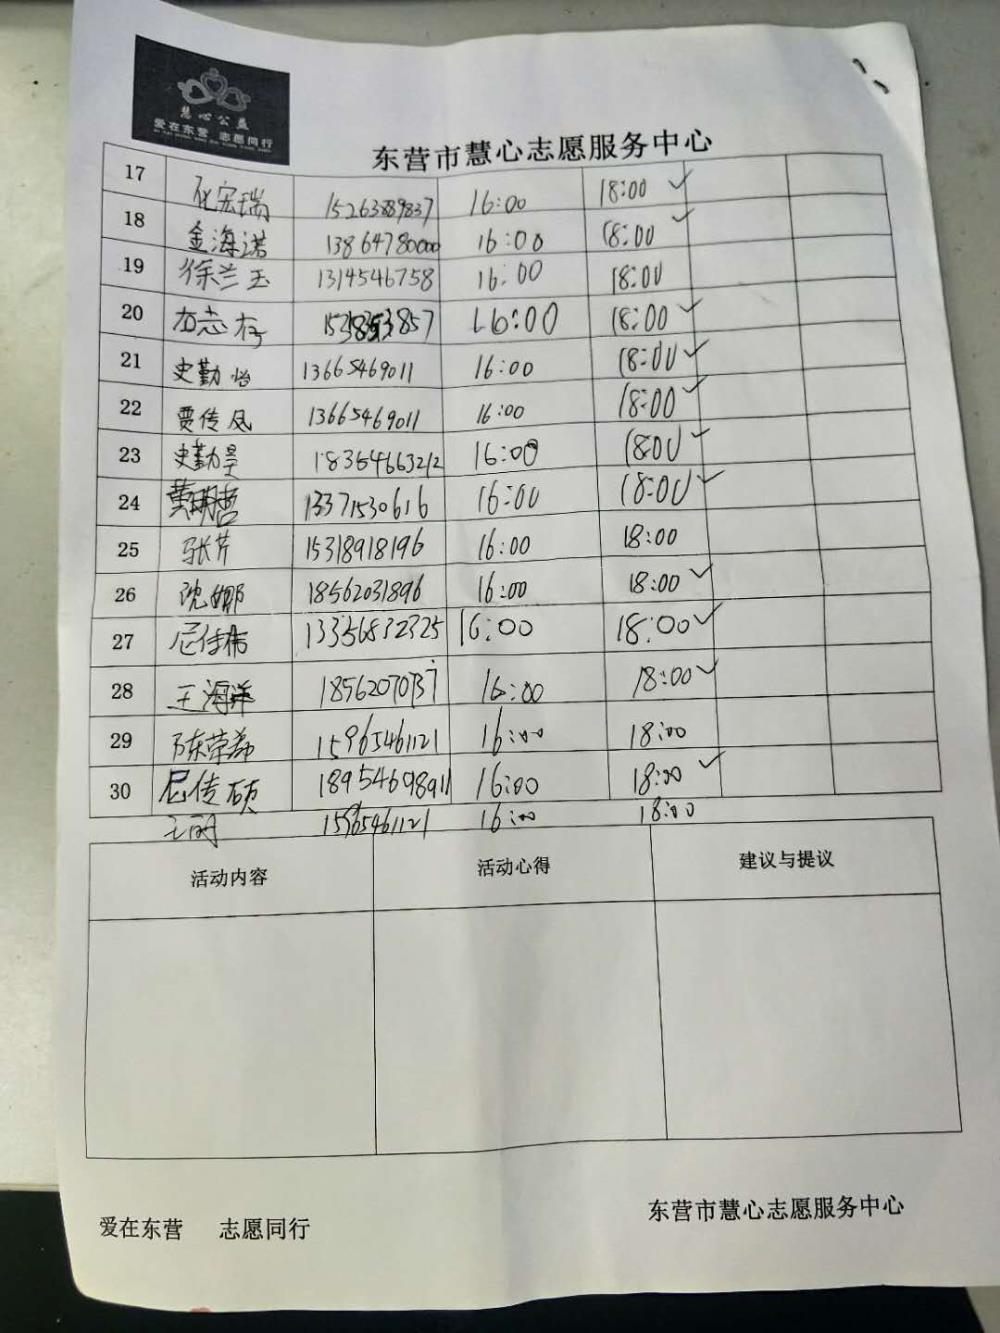 慧心公益
爱在东营 志愿同行
东营市慧心志愿服务中心
17 宏瑞 16:00 18:00 ✓
18 金海诺 13864780000 16:00 18:00 ✓
19 徐兰玉 1314546758 16:00 18:00
20 志 16:00 18:00 ✓
21 史勤怡 13665469011 16:00 18:00 ✓
22 贾传凤 13665469011 16:00 18:00 ✓
23 史勤昊 18354663212 16:00 18:00 ✓
24 黄明哲 13371530616 16:00 18:00 ✓
25 张芹 15318918196 16:00 18:00
26 沈娜 18562031896 16:00 18:00 ✓
27 13356832325 16:00 18:00 ✓
28 王海洋 16:00 18:00 ✓
29 陈荣 15965461121 16:00 18:00
30 尼传硕 18954698911 16:00 18:00 ✓
15965461121 16:00 18:00
活动内容 活动心得 建议与提议
爱在东营 志愿同行 东营市慧心志愿服务中心